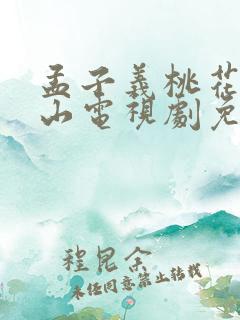 孟子義桃花
山電視劇免
程昆余
未經同意禁止轉載